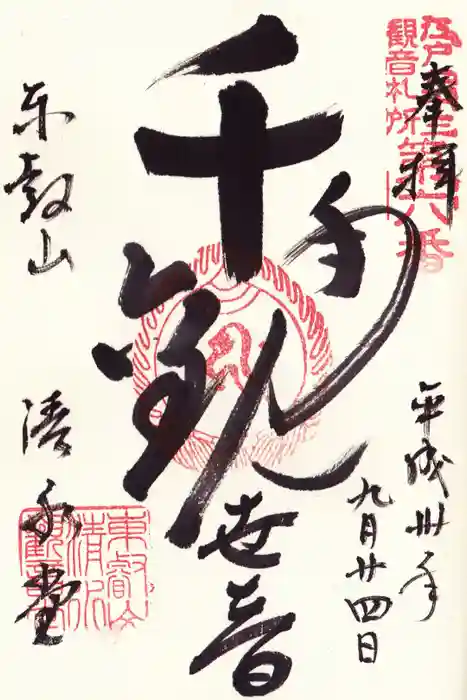 奉拝
江戸
観音札所
第六番
平成卅年
九月廿四日
千手観世音
東叡山
清水堂
東叡山
清水
觀音堂